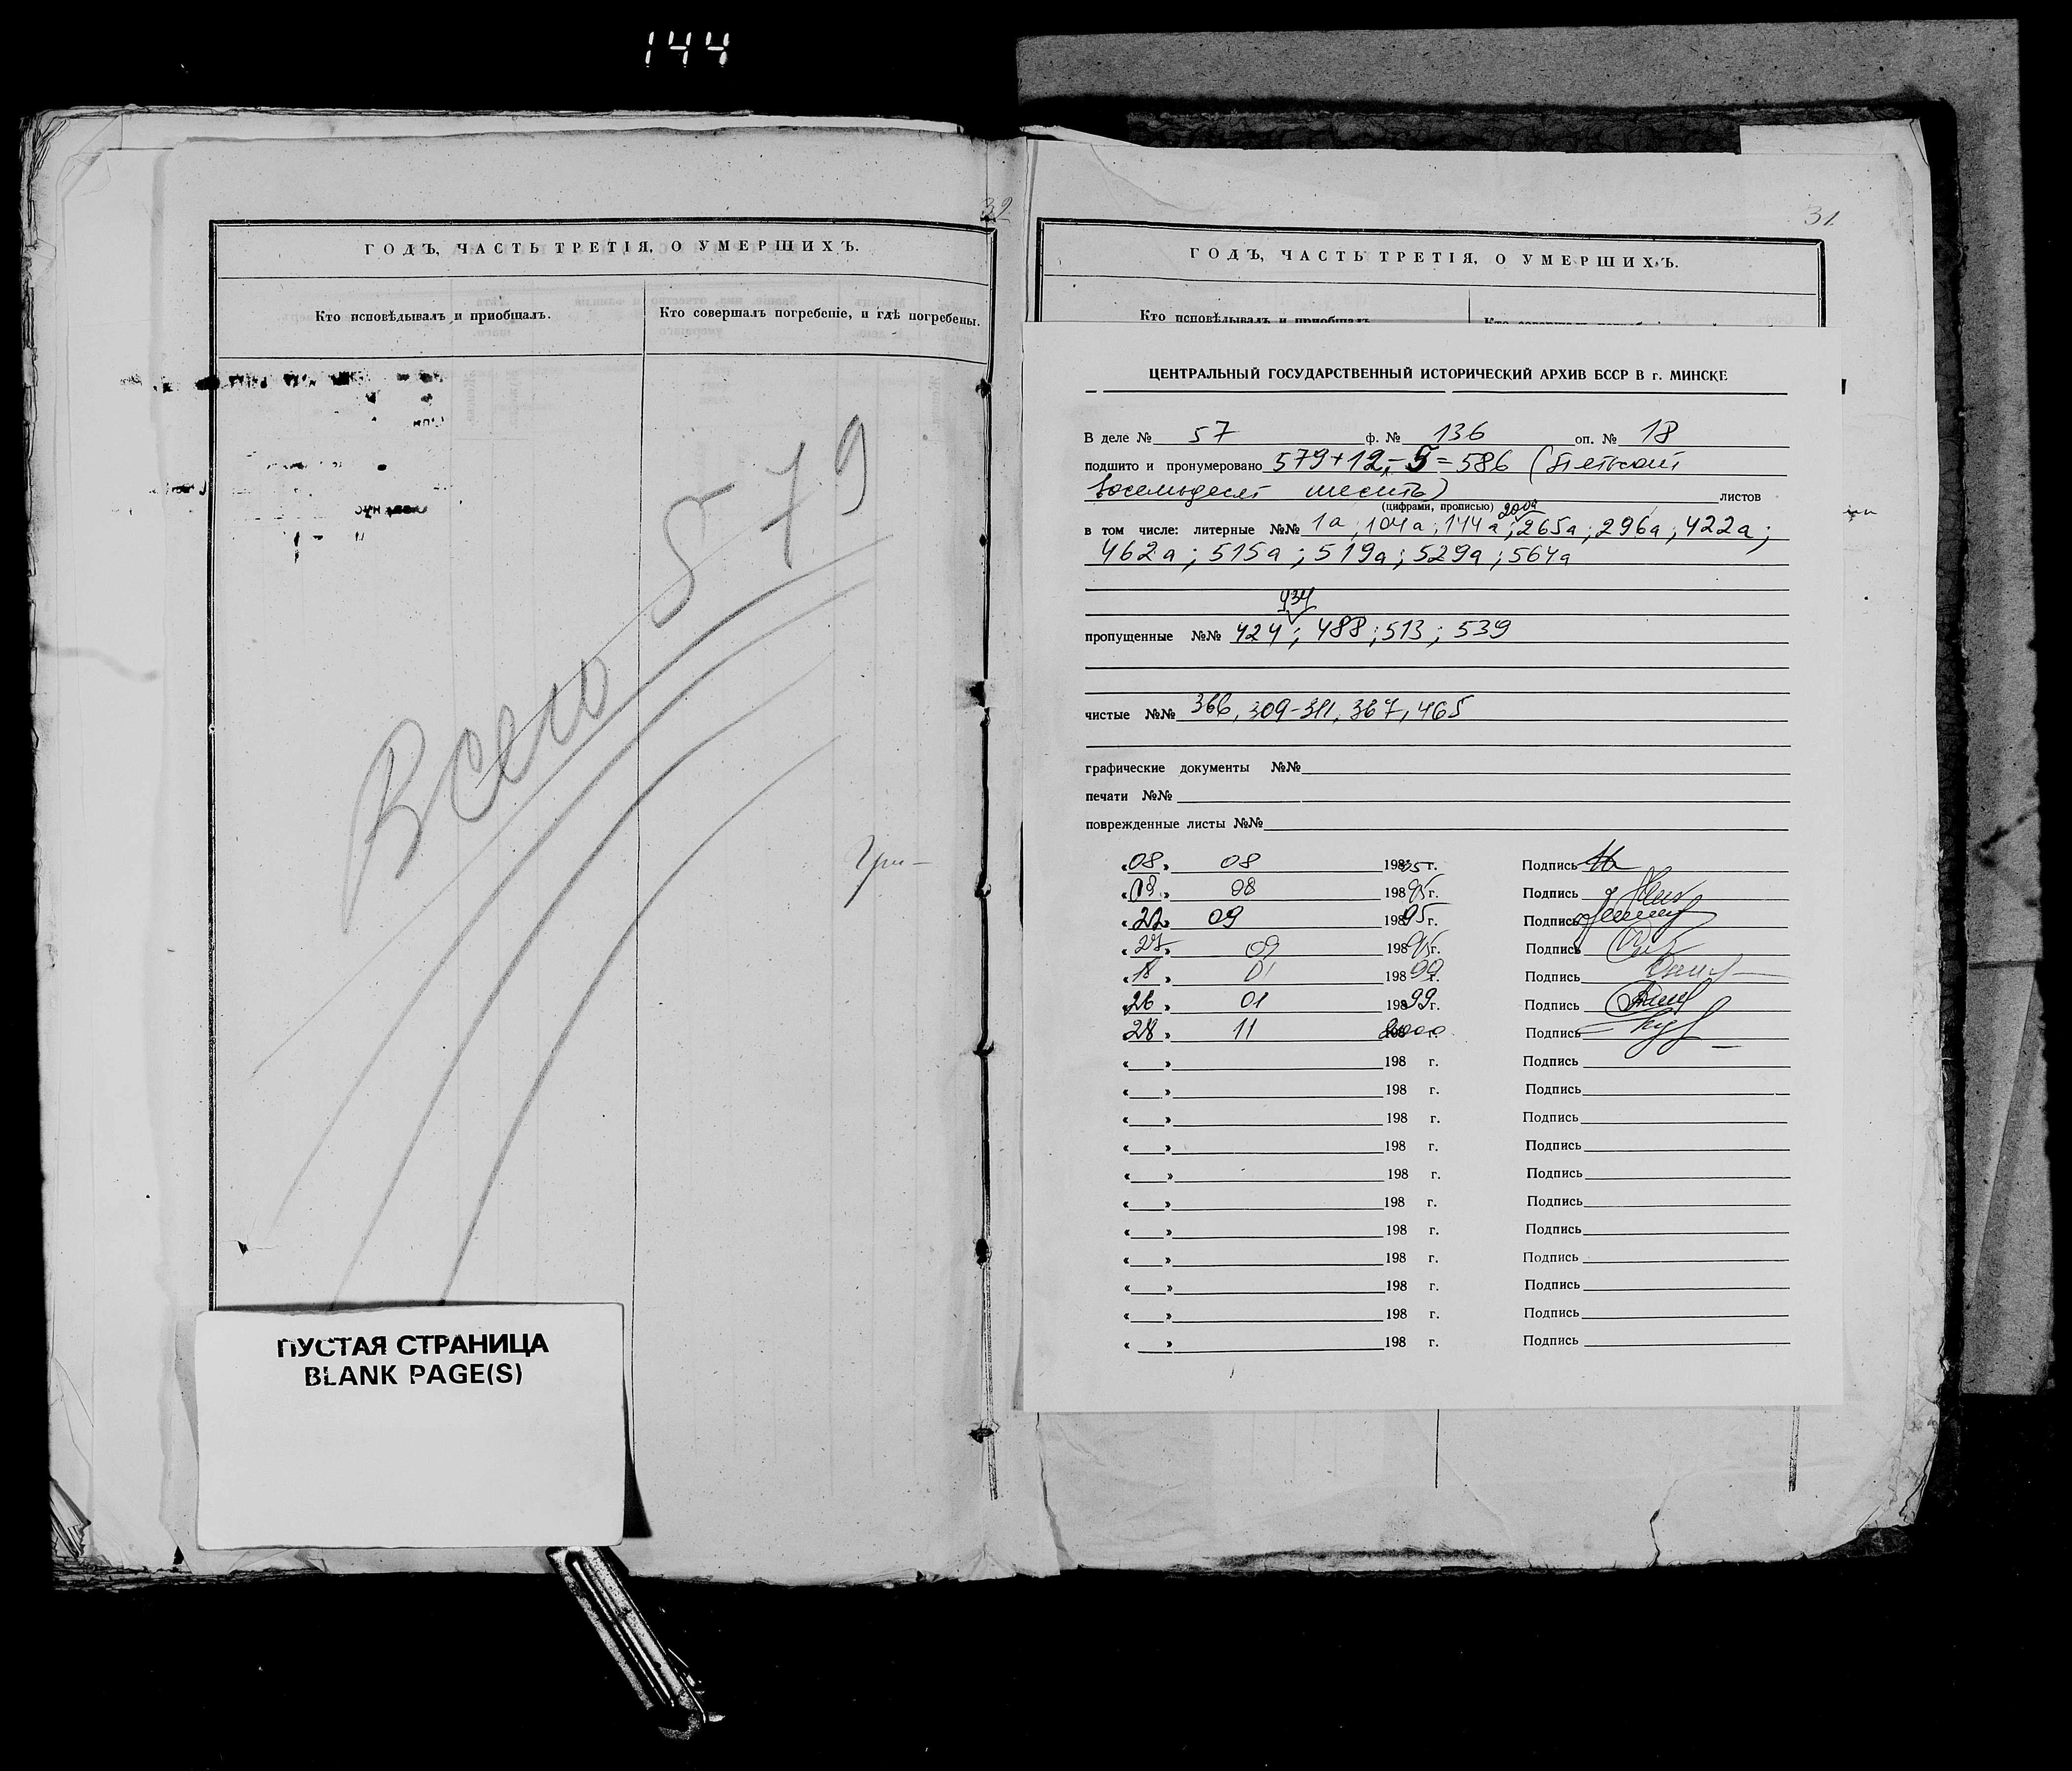 144
32
ГОДЪ, ЧАСТЬ ТРЕТІЯ, О УМЕРШИХЪ.
Кто исповѣдывалъ и пріобщалъ.
Кто совершалъ погребеніе, и гдѣ погребены.
Всего 579
ПУСТАЯ СТРАНИЦА
BLANK PAGE(S)
31
ГОДЪ, ЧАСТЬ ТРЕТІЯ, О УМЕРШИХЪ.
Кто исповѣдывалъ и пріобщалъ
ЦЕНТРАЛЬНЫЙ ГОСУДАРСТВЕННЫЙ ИСТОРИЧЕСКИЙ АРХИВ БССР В г. МИНСКЕ
В деле № 57 ф. № 136 оп. № 18
подшито и пронумеровано 579+12,-5=586 (Пятьсот
восемьдесят шесть) листов
(цифрами, прописью) 200а
в том числе: литерные №№ 1а; 104а; 144а; 265а; 296а; 422а;
462а; 515а; 519а; 529а; 564а
434
пропущенные №№ 424; 488; 513; 539
чистые №№ 366, 309-311, 367, 465
графические документы №№
печати №№
поврежденные листы №№
«08» 08 1985 г. Подпись
«09» 08 19895 г. Подпись
«22» 09 19895 г. Подпись
«27» 09 19895 г. Подпись
«18» 01 19899 г. Подпись
«26» 01 19899 г. Подпись
«28» 11 2000 г. Подпись
« » 198 г. Подпись
« » 198 г. Подпись
« » 198 г. Подпись
« » 198 г. Подпись
« » 198 г. Подпись
« » 198 г. Подпись
« » 198 г. Подпись
« » 198 г. Подпись
« » 198 г. Подпись
« » 198 г. Подпись
« » 198 г. Подпись